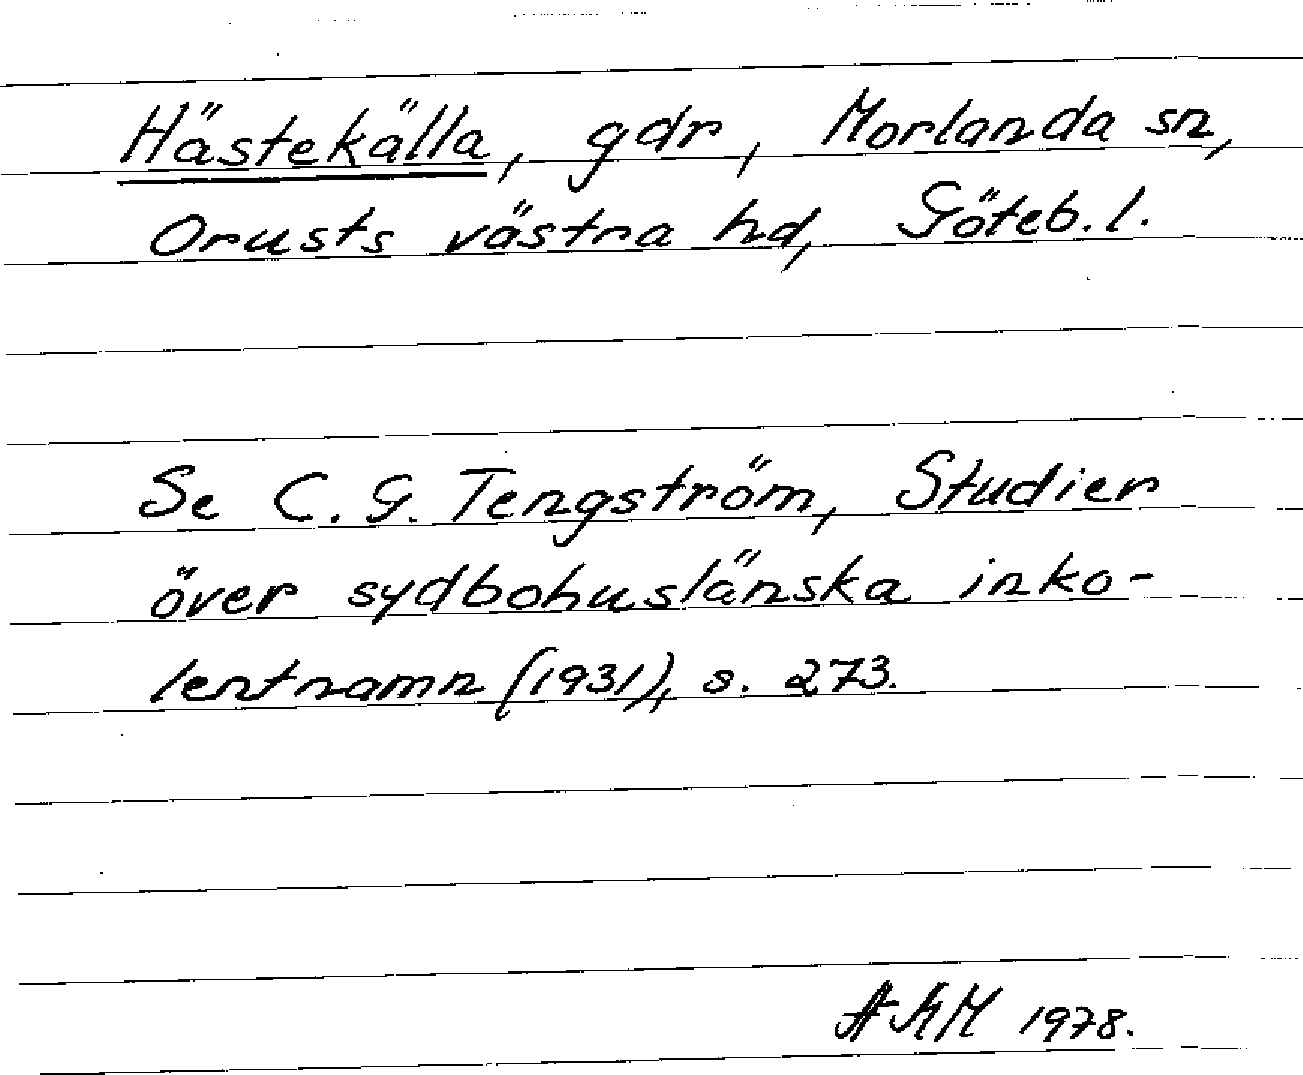 Hästekälla, gdr, Morlanda sn,
Orusts västra hd, Göteb. l.
Se C. G. Tengström, Studier
över sydbohuslänska inko-
lentnamn (1931), s. 273.
AMM 1978.